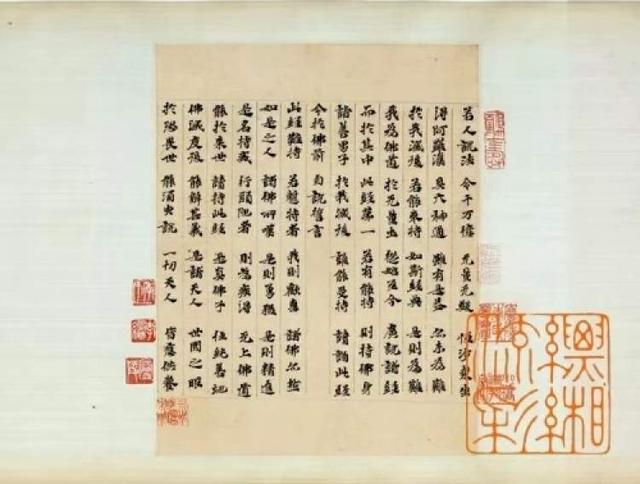 若人說法 令千万億 无量无數 恒沙衆生
得阿羅漢 具六神通 雖有是益 亦未為難
於我滅後 若能奉持 如斯經典 是則為難
我為佛道 於无量土 從始至今 廣說諸經
而於其中 此經第一 若有能持 則持佛身
諸善男子 於我滅後 誰能受持 讀誦此經
今於佛前 自說誓言
此經難持 若暫持者 我則歡喜 諸佛亦然
如是之人 諸佛所嘆 是則勇猛 是則精進
是名持戒 行頭陀者 則為疾得 无上佛道
能於來世 讀持此經 是真佛子 住純善地
佛滅度後 能解其義 是諸天人 世間之眼
於恐畏世 能須臾說 一切天人 皆應供養